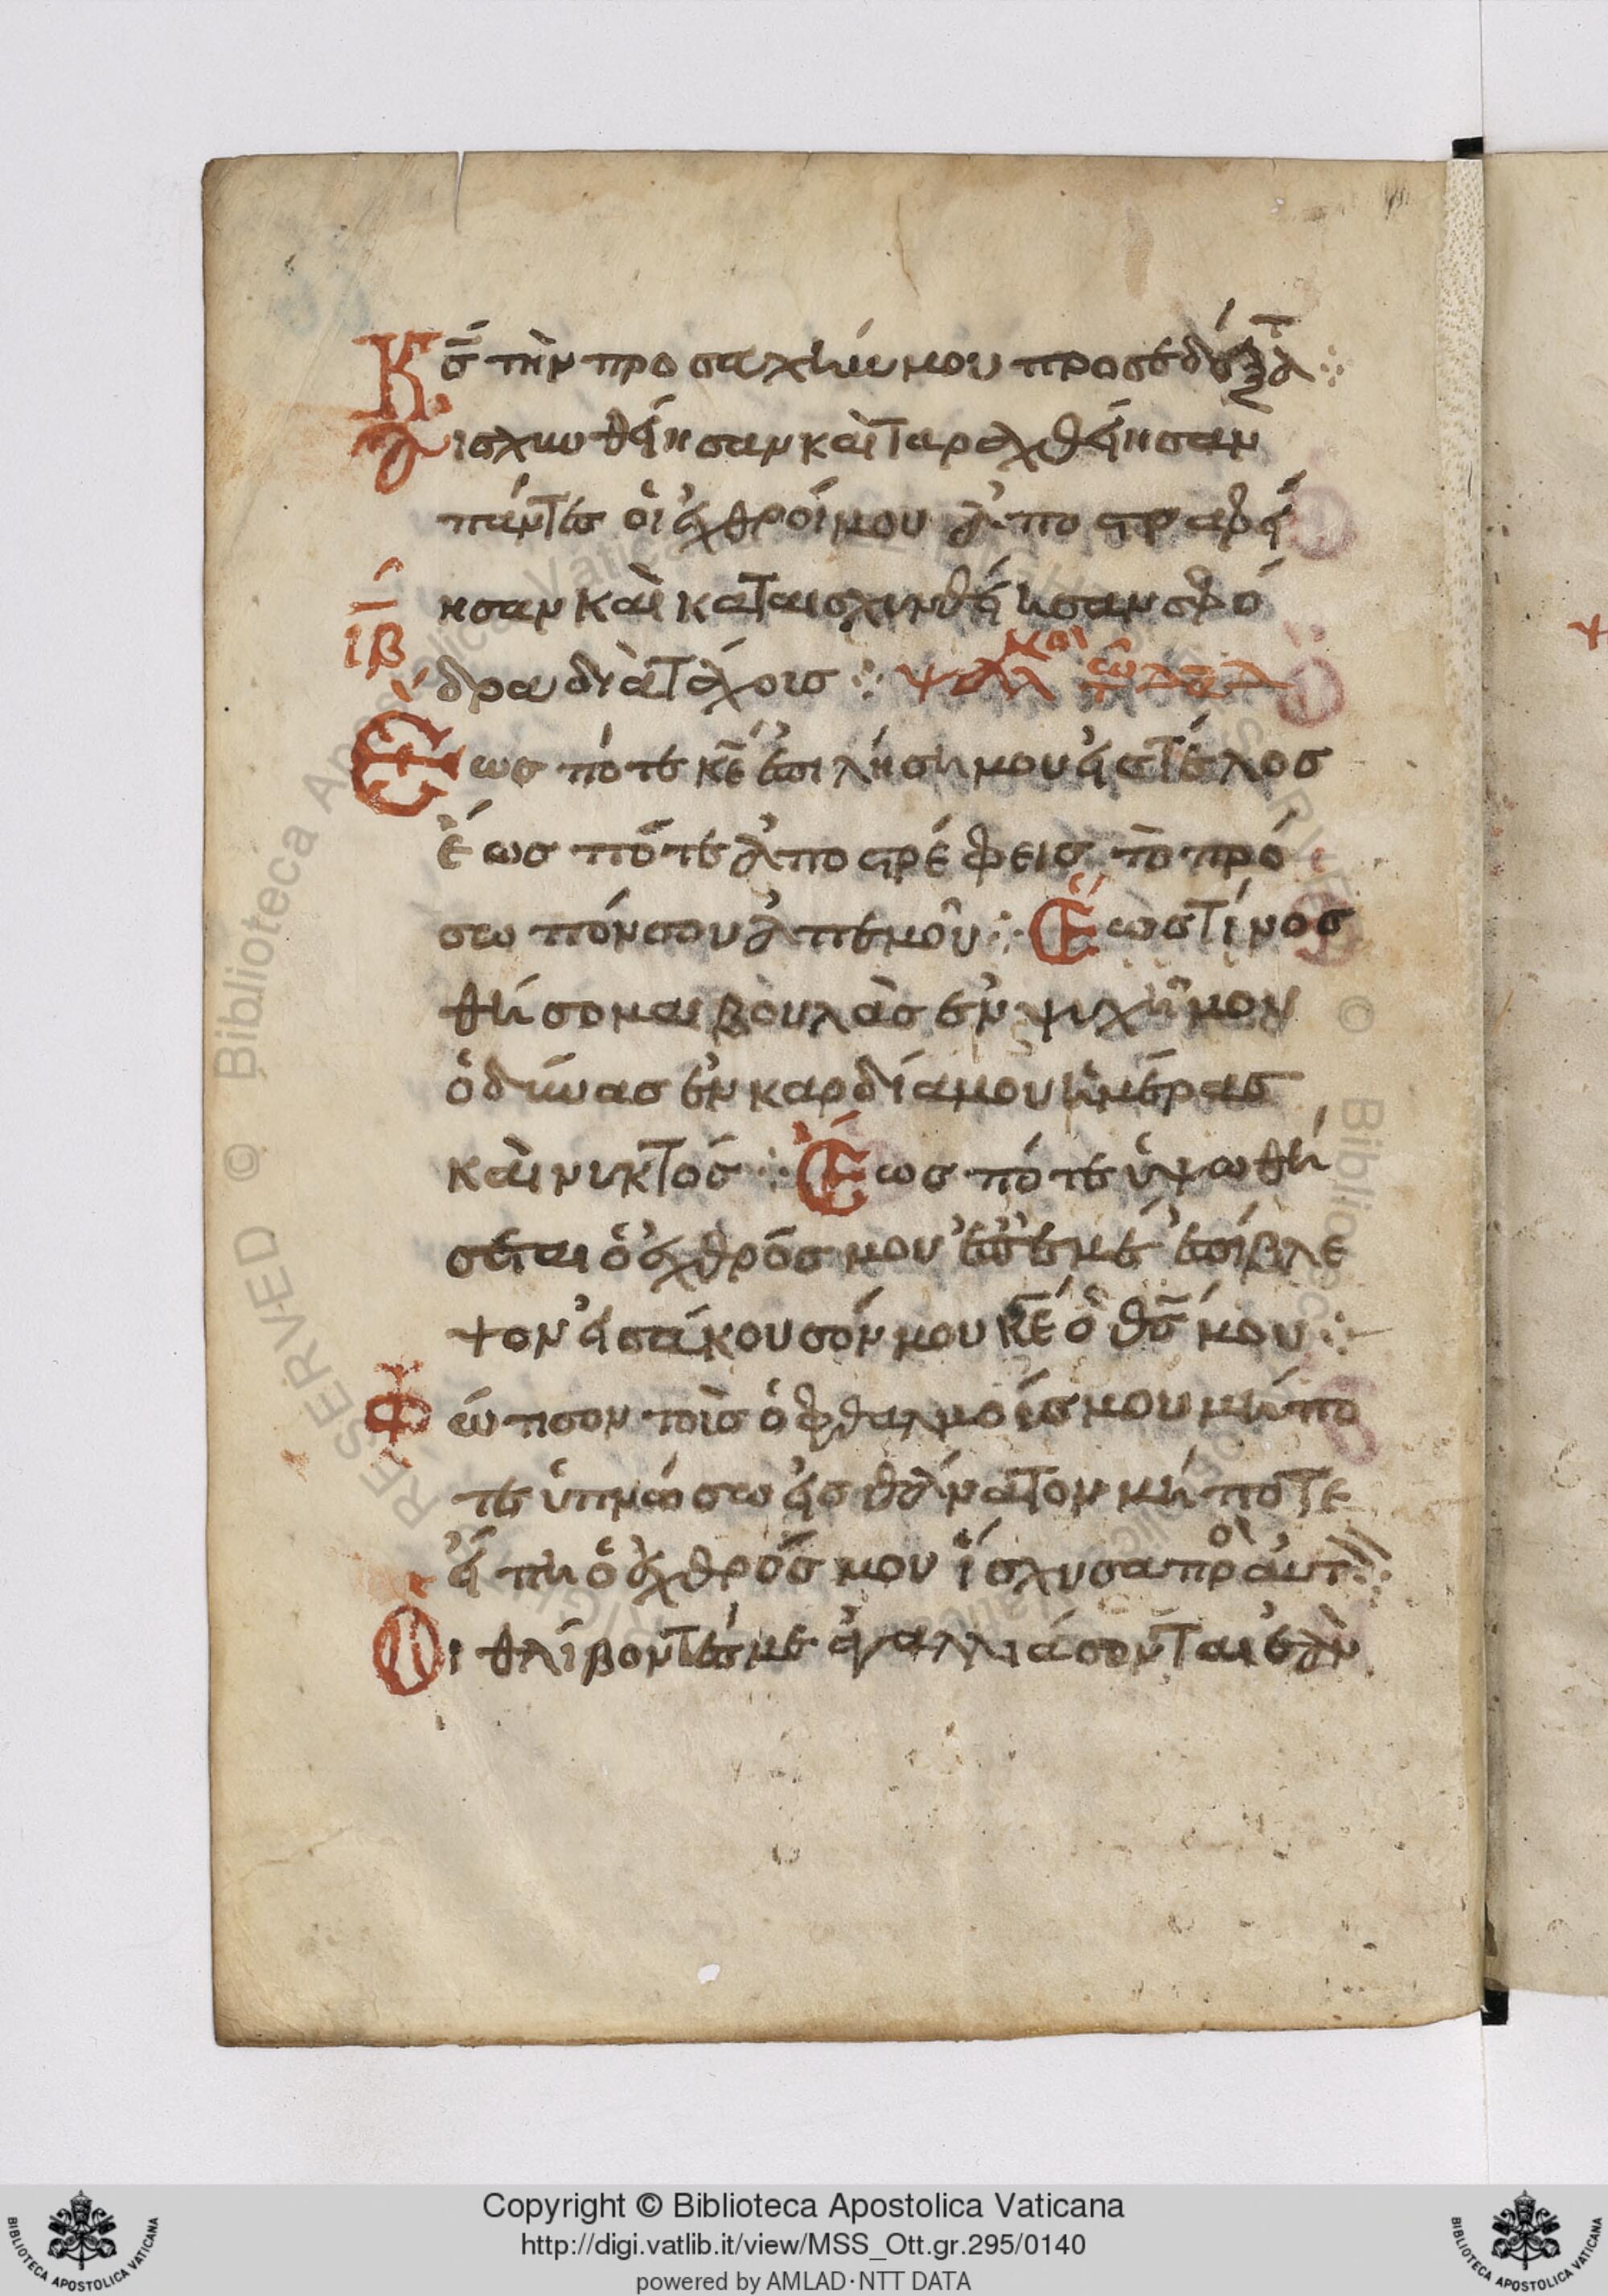 Κς τὴν προσευχήν μου προσεδέξατ
αισχυνθήησαν καὶ ταραχθήησαν
πάντες ὁι ἐχθροί μου ἀποστραφεί
ησαν καὶ καταισχυνθήησαν σφό
ιβ
δρα διὰ τάχοις ψαλ
Εως πότε κε ἐπιλήση μου εἰς τέλος
ἕως πότε ἀποστρέφεις τὸ πρό
σωπόν σου ἀπεμοῦ Ἕως τίνος
θήσομαι βουλὰς ἐν ψυχῆ μου
ὀδύνας ἐν καρδία μου ἡμέρας
καὶ νυκτός Ἕως πότε ὑψωθή
σεται ὁ ἐχθρός μου ἐπεμέ ἐπίβλε
ψον εἰσάκουσόν μου κε ὁ θς μου
Φώτησον τοὶς ὀφθαλμοίς μου μήπο
τε ὑπνώσω εἰς θάνατον μήποτε
εἴπη ὁ ἐχθρός μου ἴσχυσα πρὸ αυτ
Οι θλίβοντές με ἀγαλλιάσονται ἐὰν
Copyright © Biblioteca Apostolica Vaticana
http://digi.vatlib.it/view/MSS_Ott.gr.295/0140
powered by AMLAD·NTT DATA